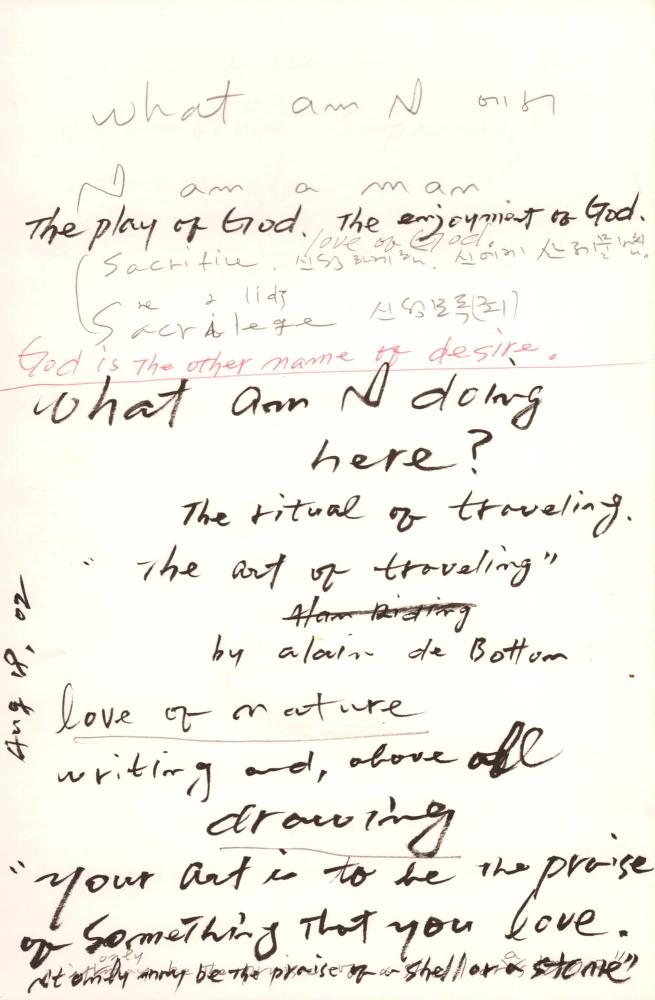 what am I 에서
I am a man
The play of God. The enjoyment of God.
love of God
Sacrifice.
re 2 lidz
Sacrilege 신성모독(죄)
God is the other name of desire.
What am I doing
here?
The ritual of traveling.
"The art of traveling"
Alan Riding
by alain de Bottom
love of nature
writing and, above all
drawing
"your art is to be the praise
of something that you love.
It only may be the praise of a shell or a stone"
Aug 18, 02